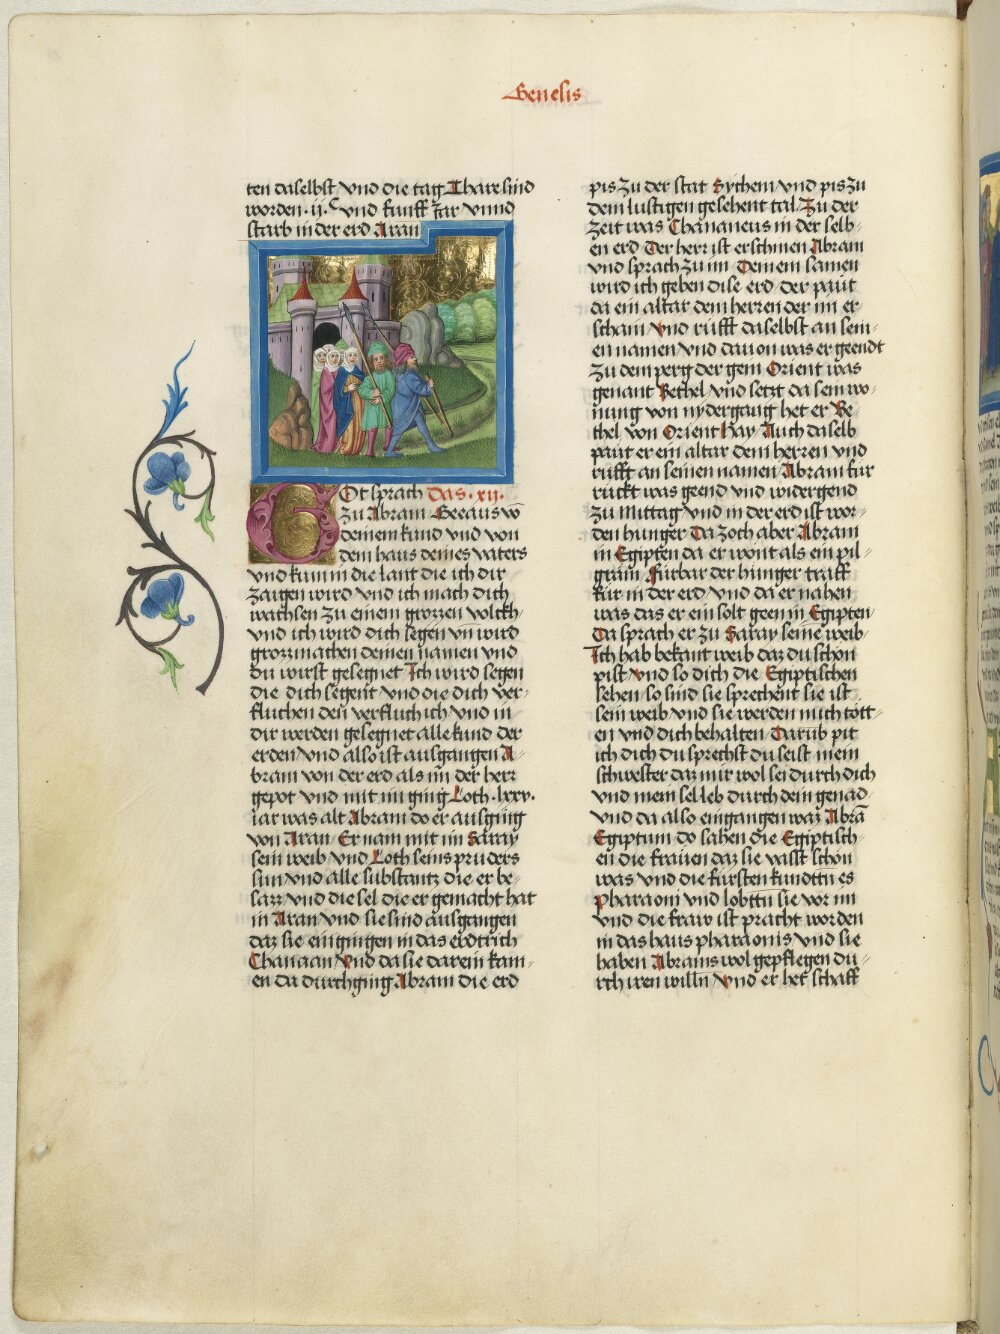 Genesis
ten daselbst vnd die tag Thare sind
worden .ii.c vnd funff Jar vnnd
starb in der erd Aran
Got sprach Das .xii.
zu Abram Gee aus võ
deinem kind vnd von
dem haus deines vaters
vnd kum in die lant die ich dir
zaigen wird vnd ich mach dich
wachsen zu einem grozzen volckh
vnd ich wird dich segen vñ wird
grozzmachen deinen namen vnd
du wirst gesegnet Ich wird segen
die dich segent vnd die dich ver-
fluchen den verfluch ich vnd in
dir werden gesegnet alle kund der
erden vnd also ist ausgangen A-
bram von der erd als im der herr
gepot vnd mit im ging Loth .lxxv.
iar was alt Abram do er ausging
von Aran Er nam mit im Saray
sein weib vnd Loth seins pruders
sun vnd alle substantz die er be-
sazz vnd die sel die er gemacht hat
in Aran vnd sie sind ausgangen
daz sie eingingen in das erdtrich
Chanaan Vnd da sie darein kam-
en da durchging Abram die erd
pis zu der stat Sychem vnd pis zu
dem lustigen gesehent tal Zu der
zeit was Chananeus in der selb-
en erd Der herr ist erschinen Abram
vnd sprach zu im Deinem samen
wird ich geben dise erd der paut
da ein altar dem herren der im er-
schain Vnd rüfft daselbst an sein-
en namen vnd dauon was er geendt
zu dem perg der gem Orient was
genant Bethel vnd setzt da sein wo-
nung von nydergang het er Be-
thel von Orient Hay Auch daselb
paut er ein altar dem herren vnd
rüfft an seinen namen Abram für
ruckt was geend vnd widergend
zu Mittag vnd in der erd ist wor-
den hunger Da zoch aber Abram
in Egipten da er wont als ein pil-
gram Furbar der hunger traff
für in der erd vnd da er nahen
was das er ein solt geen in Egipten
Da sprach er zu Saray seine weib
Ich hab bekant weib daz du schon
pist Vnd so dich die Egiptischen
sehen so sind sie sprechent sie ist
sein weib vnd sie werden mich tött-
en vnd dich behalten Darüb pit
ich dich du sprechst du seist mein
schwester daz mir wol sei durch dich
vnd mein sel leb durch dein genad
vnd da also eingangen waz Abrã
Egiptum do sahen die Egiptisch-
en die frauen daz sie vasst schön
was vnd die fürsten kundttñ es
pharaoni vnd lobttñ sie vor im
vnd die fraw ist pracht worden
in das haus pharaonis vnd sie
haben Abrams wol gepflegen du-
rch iren willñ Vnd er het schaff